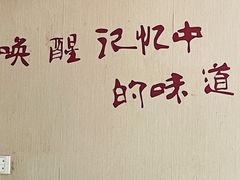 唤醒记忆中
的味道